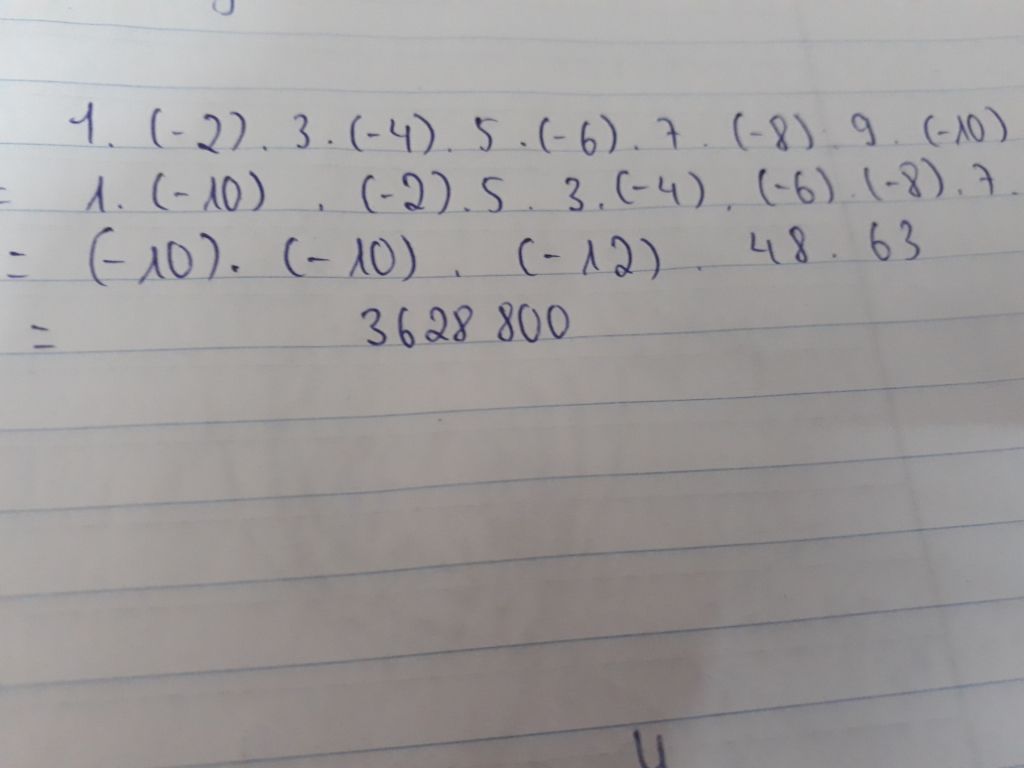 1. (-2). 3. (-4). 5. (-6). 7. (-8). 9. (-10)
= 1. (-10) . (-2). 5. 3. (-4). (-6). (-8). 7.
= (-10). (-10). (-12). 48. 63
= 3628 800